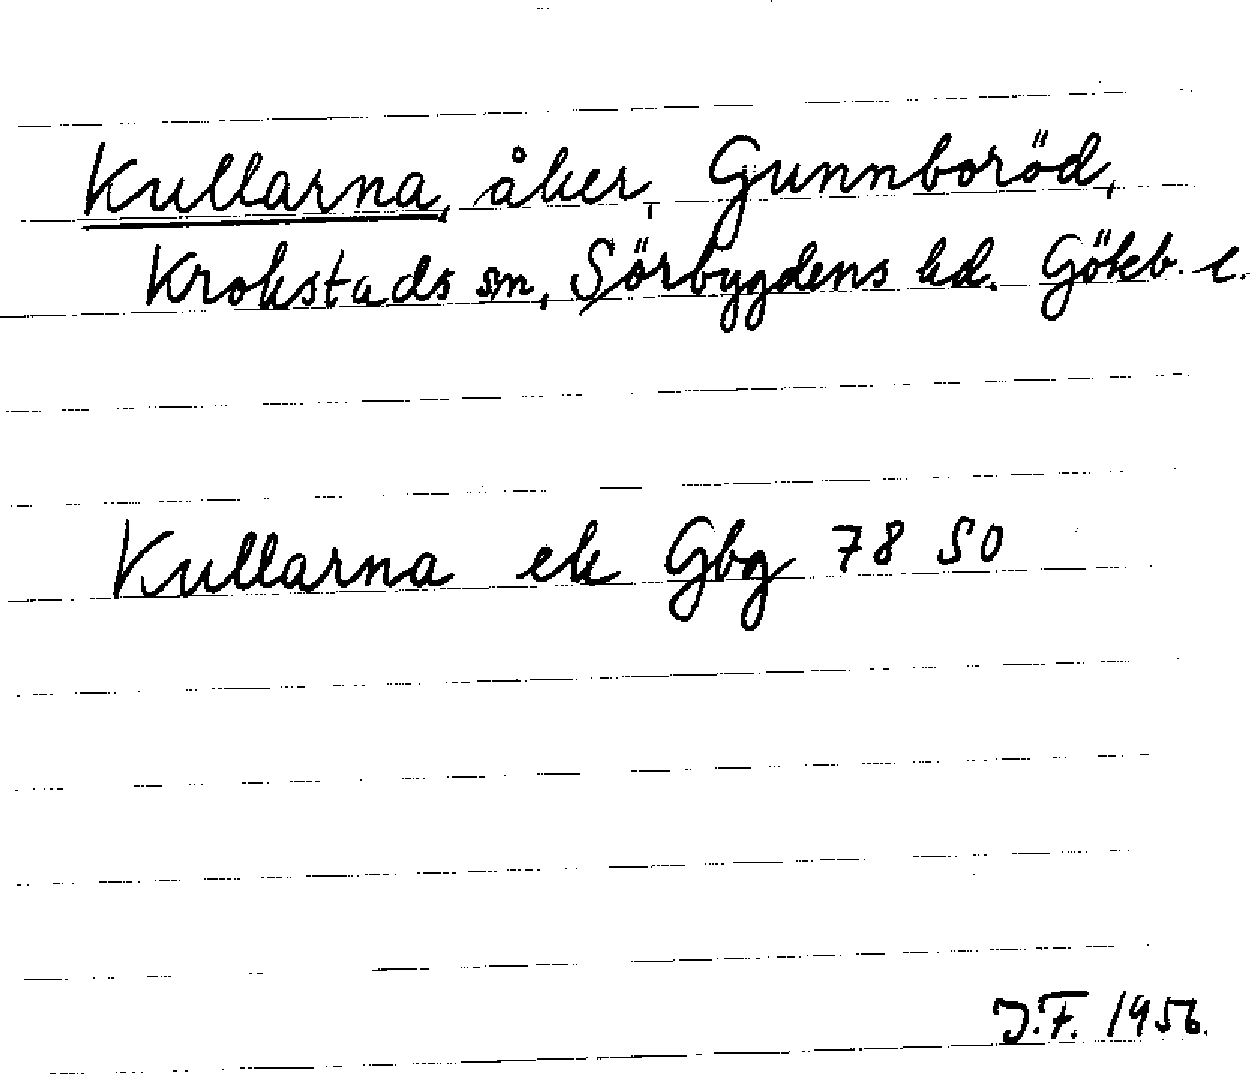 Kullarna, åker, Gunnboröd,
Krokstads sn, Sörbygdens hd. Gökb. l.
Kullarna ek Gbg 78 SO
J.F. 1956.